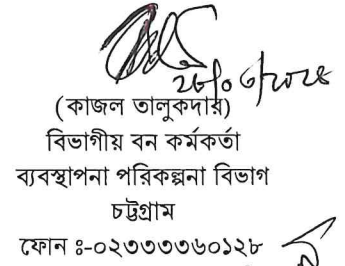 (কাজল তালুকদার)
বিভাগীয় বন কর্মকর্তা
ব্যবস্থাপনা পরিকল্পনা বিভাগ
চট্টগ্রাম
ফোন ঃ-০২৩৩৩৩৬০১২৮